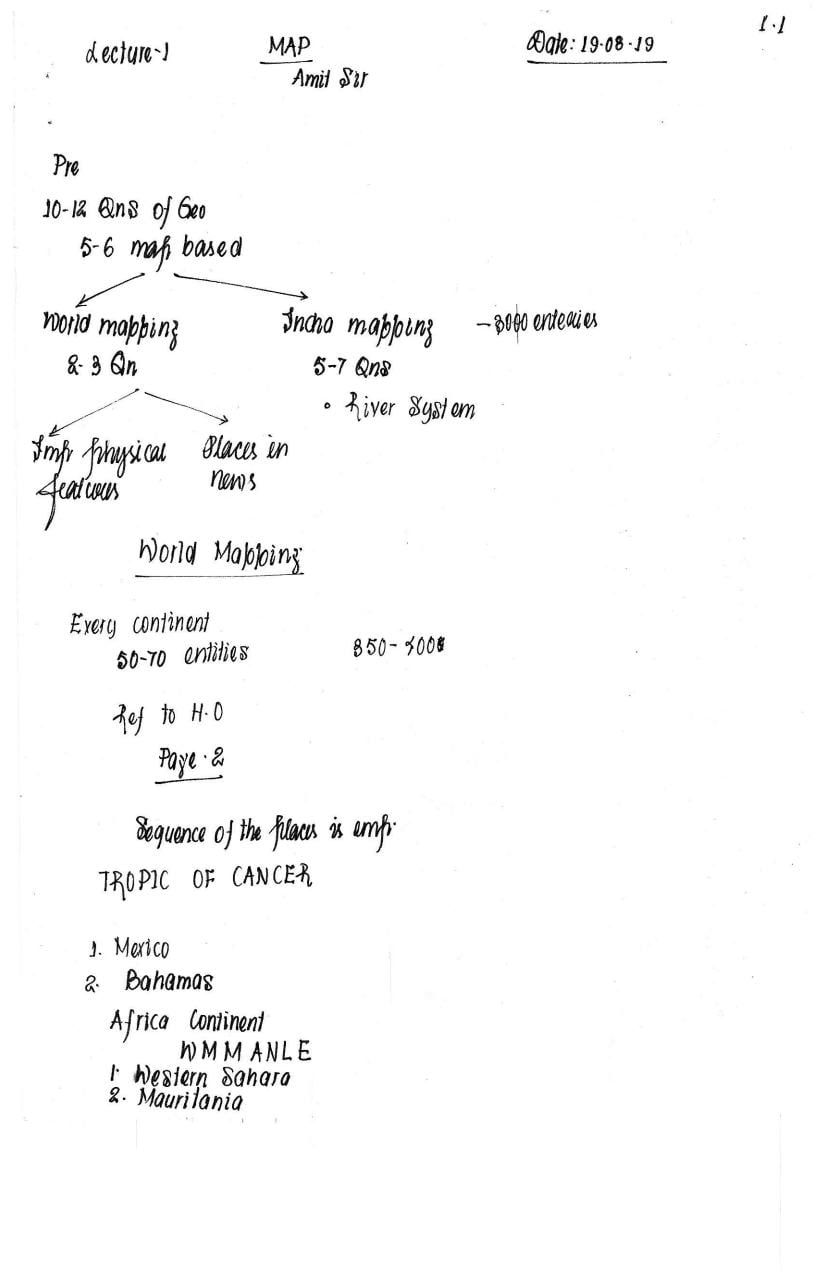 1.1
Lecture-1 MAP Date: 19.08.19
Amit Sir
Pre
10-12 Qns of Geo
5-6 map based
World mapping India mapping - enteries
2-3 Qn 5-7 Qns
• River System
Imp physical Places in
features news
World Mapping
Every continent
50-70 entities 350-
Ref to H.O
Page.2
Sequence of the places is imp.
TROPIC OF CANCER
1. Mexico
2. Bahamas
Africa Continent
WMMANLE
1. Western Sahara
2. Mauritania